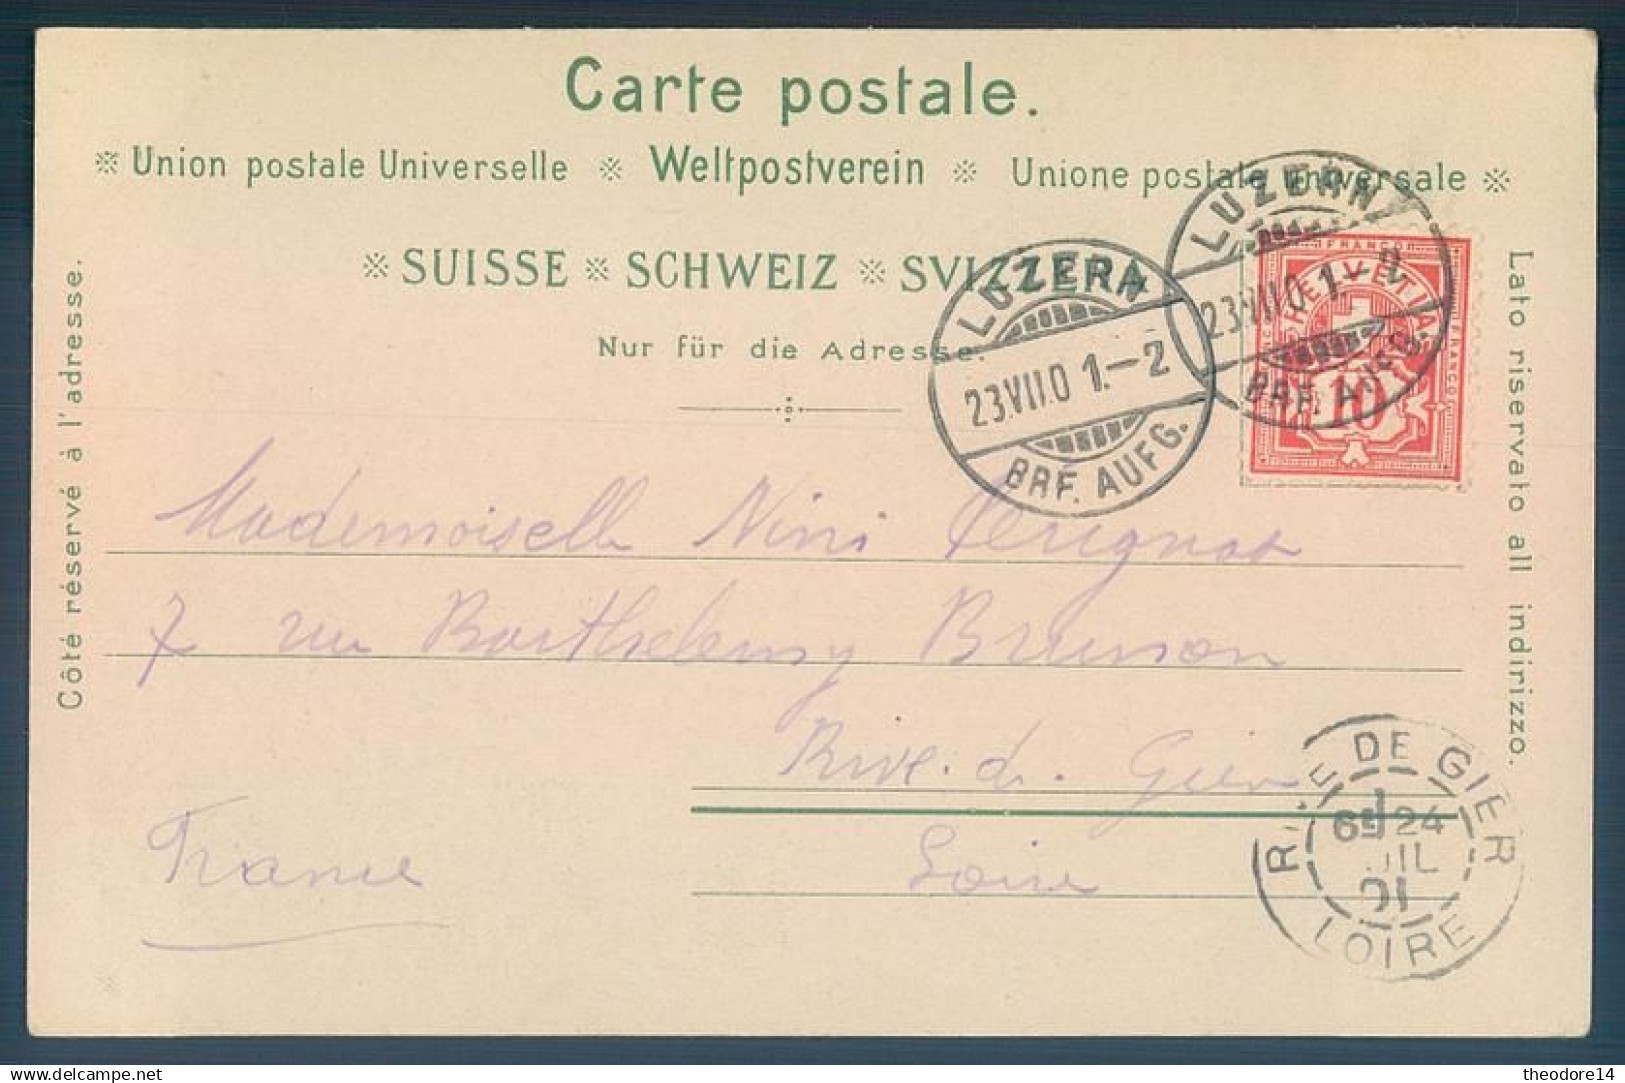 Carte postale.
※ Union postale Universelle ※ Weltpostverein ※ Unione postale universale ※
※ SUISSE ※ SCHWEIZ ※ SVIZZERA
Nur für die Adresse.
Côté réservé à l'adresse.
Lato riservato all indirizzo.
LUZERN
23.VII.01.–2
BRF. AUFG.
LUZERN
23.VII.01.–2
BRF. AUFG.
FRANCO
HELVETIA
10
FRANCO
Mademoiselle Nini
7 rue Barthelemy Brunon
Rive. d. Gier
Loire
France
RIVE DE GIER
6E 24
JUIL
01
LOIRE
delcampe.net
theodore14